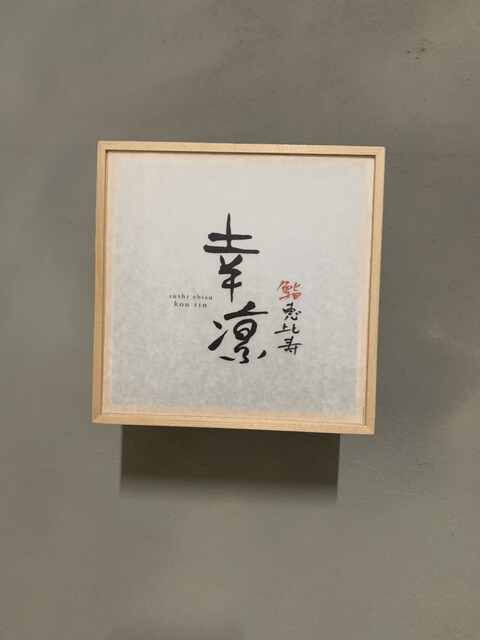 鮨恵比寿
幸凛
sushi ebisu
kou rin